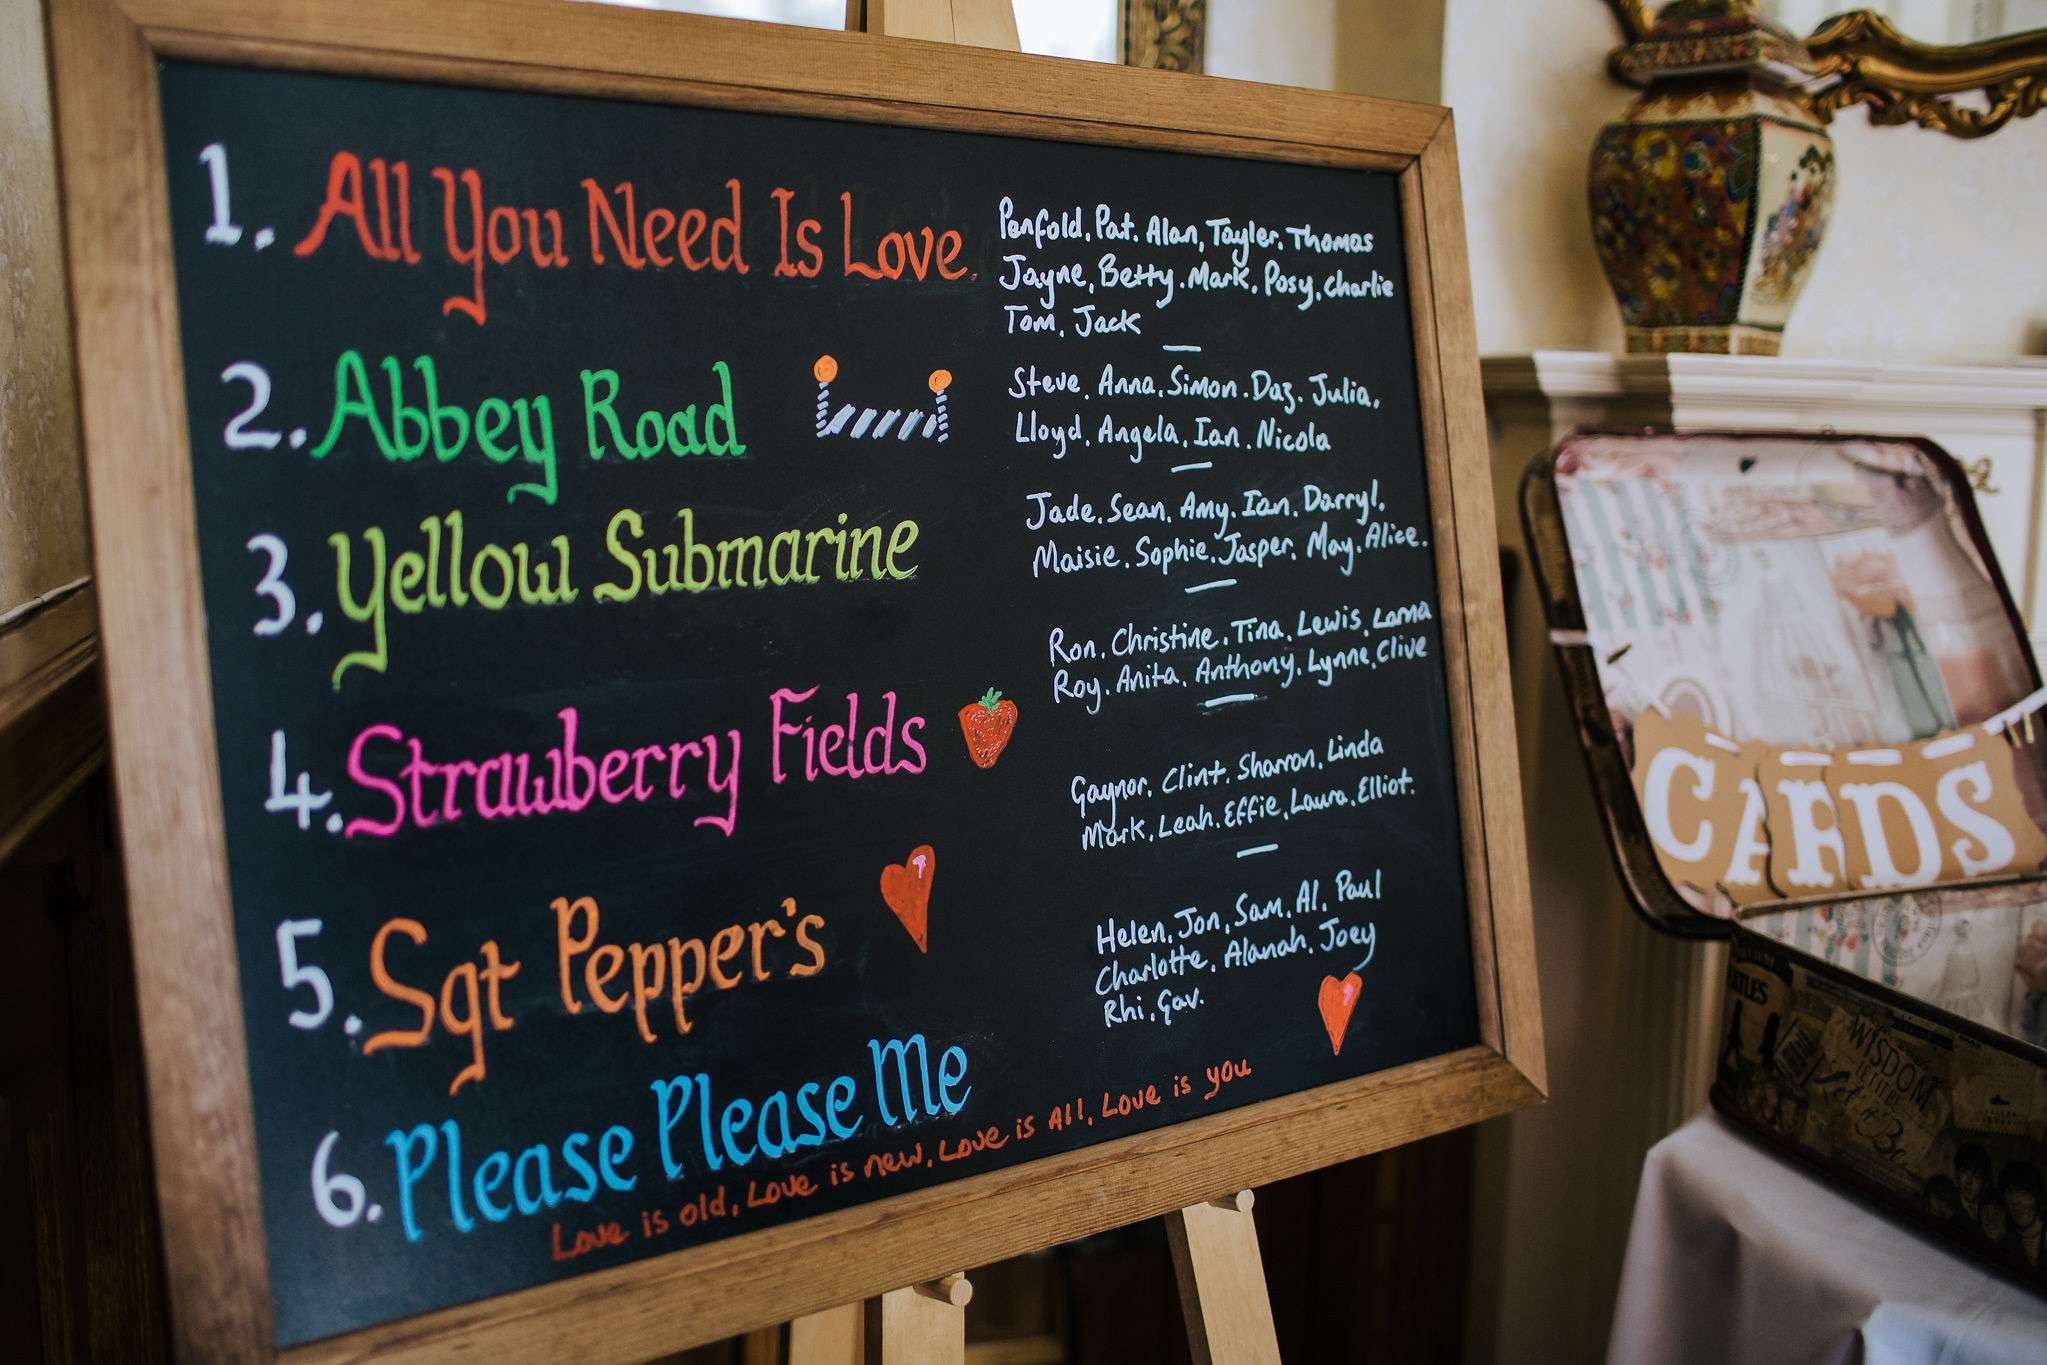 1. All You Need Is Love.
Penfold, Pat. Alan, Tayler. Thomas
Jayne, Betty. Mark, Posy, Charlie
Tom, Jack
2. Abbey Road
Steve, Anna, Simon. Daz, Julia,
Lloyd, Angela, Ian. Nicola
3. Yellow Submarine
Jade, Sean, Amy, Ian, Darryl,
Maisie. Sophie, Jasper, May, Alice.
4. Strawberry Fields
Ron, Christine, Tina, Lewis, Lorna
Roy, Anita, Anthony, Lynne, Clive
5. Sgt Pepper's
Gaynor, Clint, Sharron, Linda
Mark, Leah. Effie, Laura, Elliot.
6. Please Please Me
Helen, Jon, Sam, Al, Paul
Charlotte, Alanah, Joey
Rhi, Gav.
Love is old, Love is new, Love is All, Love is you
CARDS
WISDOM
LET IT BE